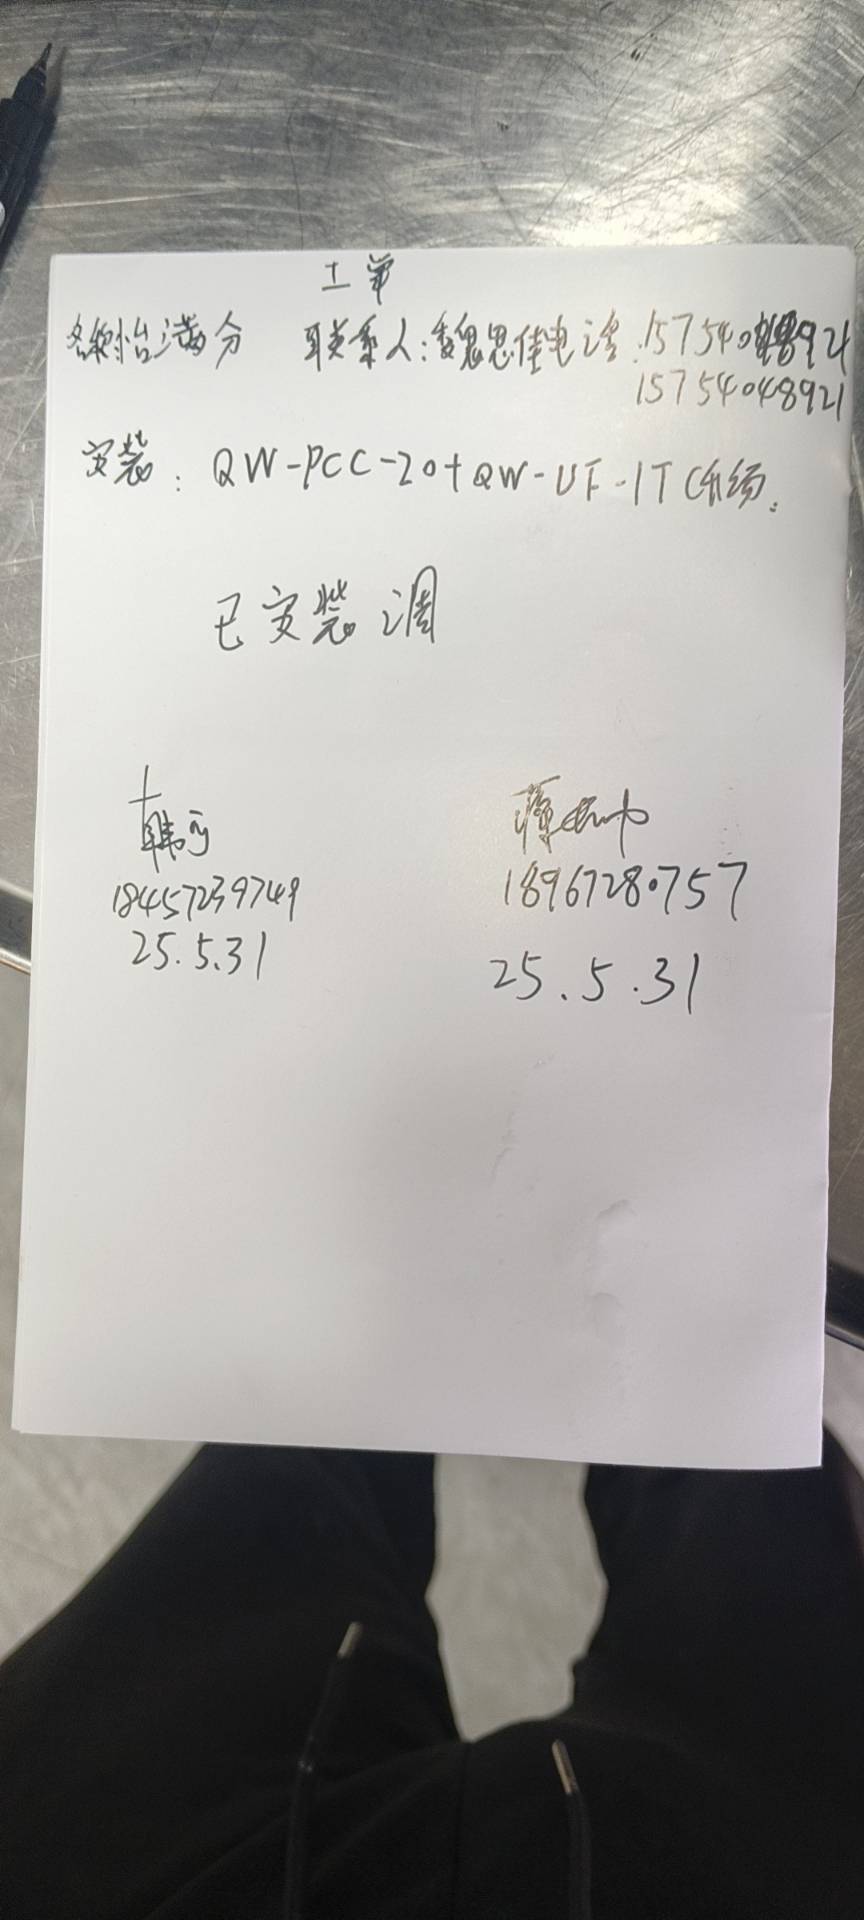 工单
怡满分 联系人:魏思佳电话:15754048921
15754048921
安装: QW-PCC-20+QW-UF-1T
已安装调
韩
18457239749
25.5.31
18967280757
25.5.31